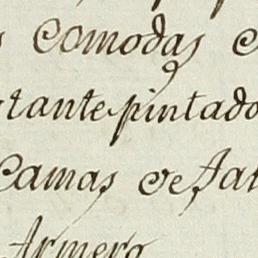 comodas
tante pintado
Camas de
Armero